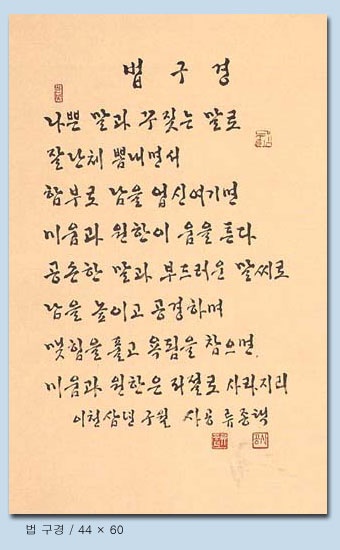 법 구 경
나쁜 말과 꾸짖는 말로
잘난체 뽐내면서
함부로 남을 업신여기면
미움과 원한이 움을 튼다
공손한 말과 부드러운 말씨로
남을 높이고 공경하며
맺힘을 풀고 욕됨을 참으면
미움과 원한은 저절로 사라지리
이천삼년 구월 사공 류종택
법 구경 / 44 × 60